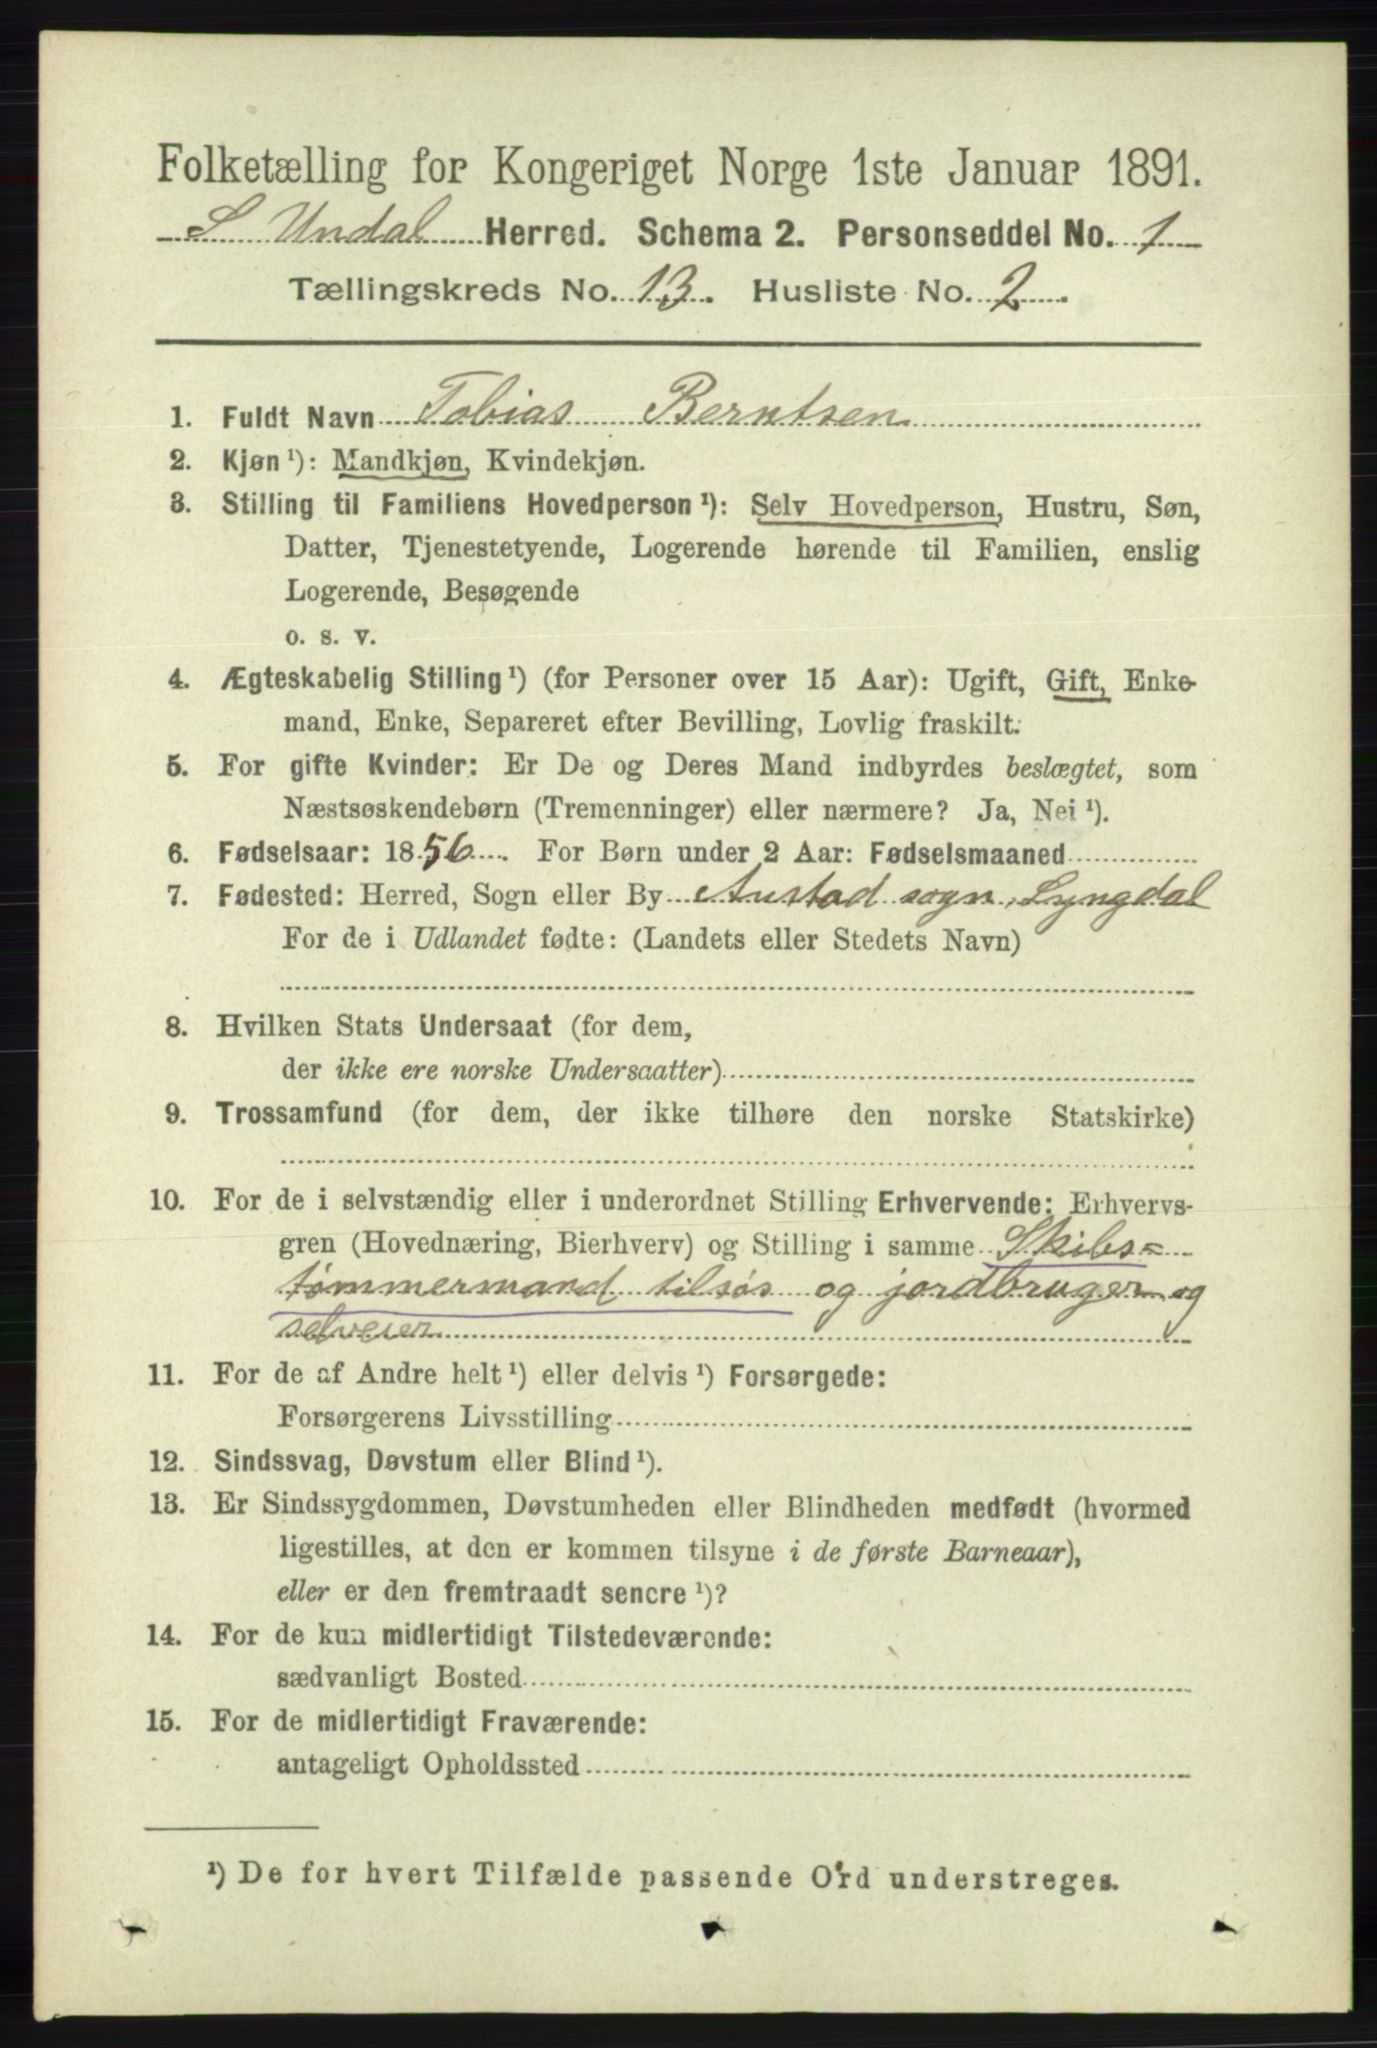 Folketælling for Kongeriget Norge 1ste Januar 1891.
S Undal Herred. Schema 2. Personseddel No. 1
Tællingskreds No. 13. Husliste No. 2.
1. Fuldt Navn Tobias Berntsen
2. Kjøn ¹): Mandkjøn, Kvindekjøn.
3. Stilling til Familiens Hovedperson ¹): Selv Hovedperson, Hustru, Søn,
Datter, Tjenestetyende, Logerende hørende til Familien, enslig
Logerende, Besøgende
o. s. v.
4. Ægteskabelig Stilling ¹) (for Personer over 15 Aar): Ugift, Gift, Enke-
mand, Enke, Separeret efter Bevilling, Lovlig fraskilt.
5. For gifte Kvinder: Er De og Deres Mand indbyrdes beslægtet, som
Næstsøskendebørn (Tremenninger) eller nærmere? Ja, Nei ¹).
6. Fødselsaar: 1856. For Børn under 2 Aar: Fødselsmaaned
7. Fødested: Herred, Sogn eller By Austad sogn, Lyngdal
For de i Udlandet fødte: (Landets eller Stedets Navn)
8. Hvilken Stats Undersaat (for dem,
der ikke ere norske Undersaatter)
9. Trossamfund (for dem, der ikke tilhøre den norske Statskirke)
10. For de i selvstændig eller i underordnet Stilling Erhvervende: Erhvervs-
gren (Hovednæring, Bierhverv) og Stilling i samme Skibs=
tømmermand tilsøs og jordbruger og
selveier
11. For de af Andre helt ¹) eller delvis ¹) Forsørgede:
Forsørgerens Livsstilling
12. Sindssvag, Døvstum eller Blind ¹).
13. Er Sindssygdommen, Døvstumheden eller Blindheden medfødt (hvormed
ligestilles, at den er kommen tilsyne i de første Barneaar),
eller er den fremtraadt senere ¹)?
14. For de kun midlertidigt Tilstedeværende:
sædvanligt Bosted
15. For de midlertidigt Fraværende:
antageligt Opholdssted
¹) De for hvert Tilfælde passende Ord understreges.